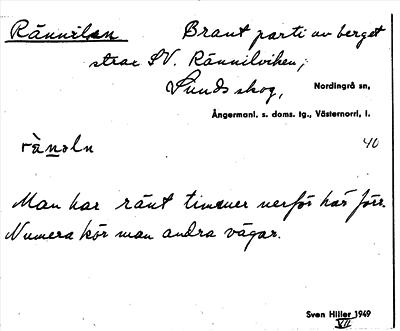 Rännilen Brant parti av berget
strax SV. Rännilviken,
Sunds skog, Nordingrå sn,
Ångermanl. s. doms. tg., Västernorrl. l.
40
Man har ränt timmer nerför här förr.
Numera kör man andra vägar.
Sven Hiller 1949
VII